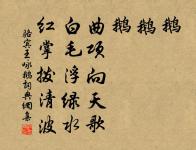 鹅鹅鹅
曲项向天歌
白毛浮绿水
红掌拨清波
骆宾王咏鹅词典网集